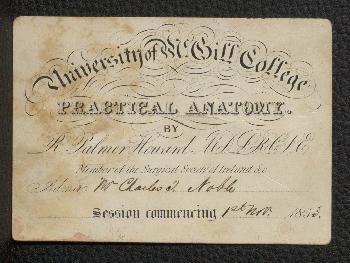 University of McGill College
PRACTICAL ANATOMY.
BY
R. Palmer Howard M.D. L.R.C.S.E.
Member of the Surgical Society of Ireland &c
Admit Mr Charles T. Noble
Session commencing 1st Nov. 1853.